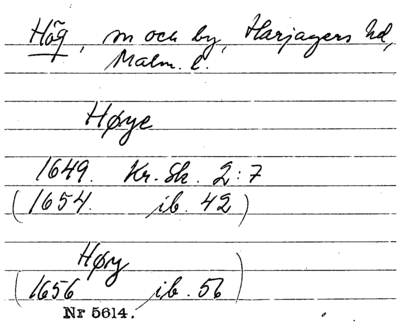 Hög, sn och by, Harjagers hd,
Malm. l.
Høye
1649. Kr. Sk. 2:7
(1654. ib. 42)
Høy
(1656 ib. 56)
Nr 5614.